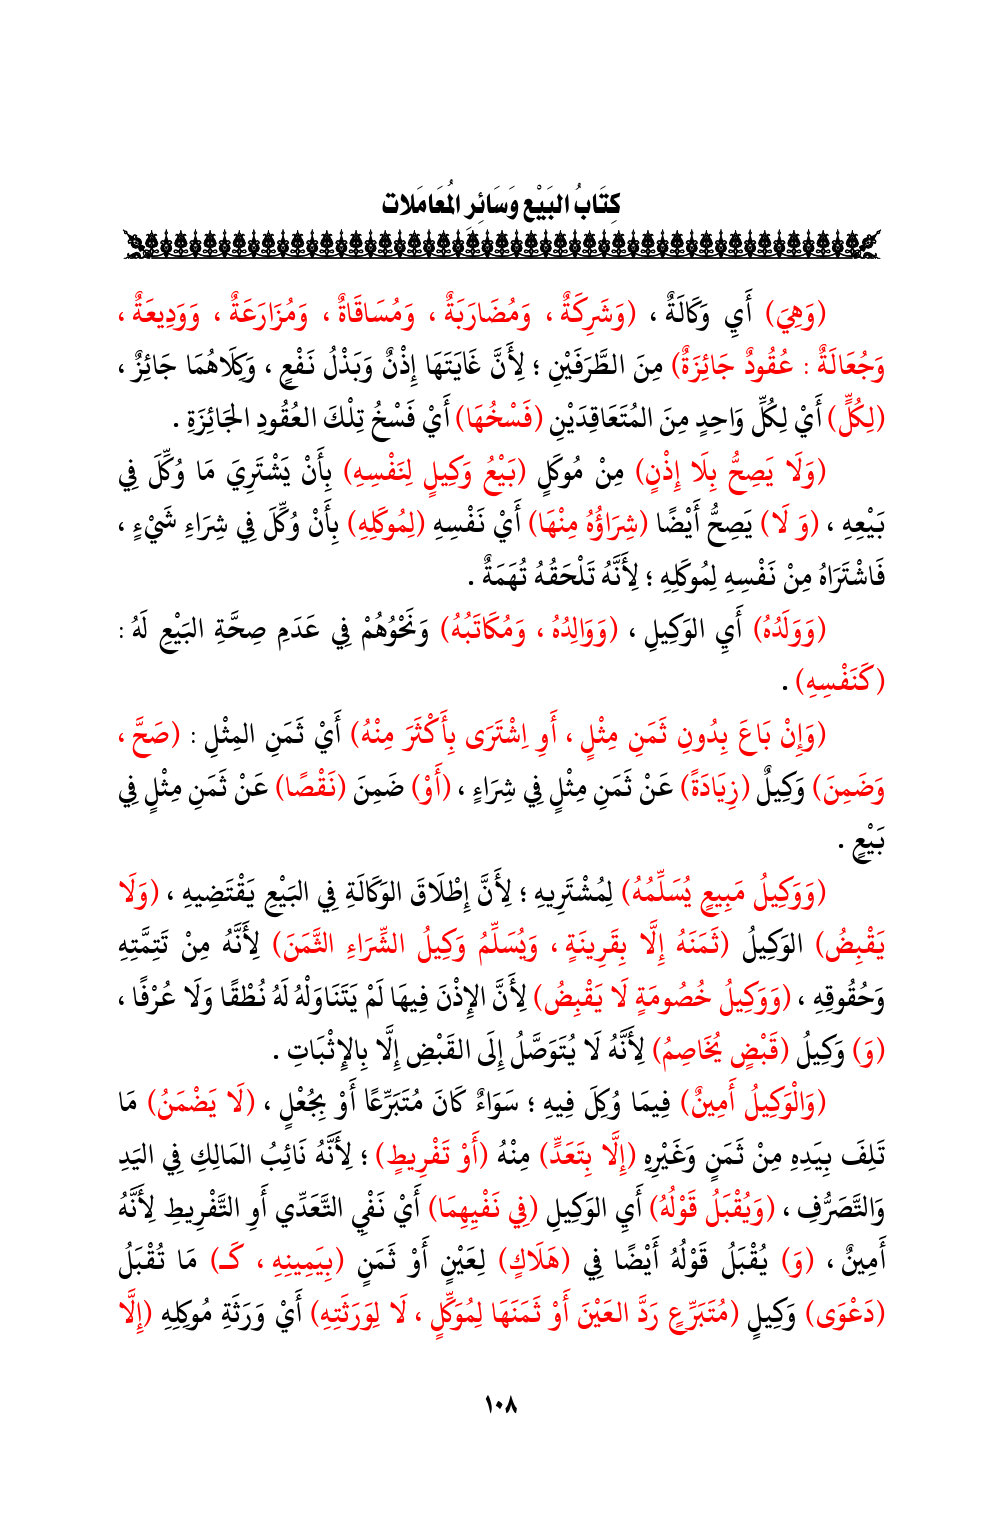 كِتَابُ البَيْعِ وَسَائِرِ المُعَامَلات
(وَهِيَ) أَيِ وَكَالَةٌ ، (وَشَرِكَةٌ ، وَمُضَارَبَةٌ ، وَمُسَاقَاةٌ ، وَمُزَارَعَةٌ ، وَوَدِيعَةٌ ،
وَجُعَالَةٌ : عُقُودٌ جَائِزَةٌ) مِنَ الطَّرَفَيْنِ ؛ لِأَنَّ غَايَتَهَا إِذْنٌ وَبَذْلُ نَفْعٍ ، وَكِلَاهُمَا جَائِزٌ ،
(لِكُلٍّ) أَيْ لِكُلِّ وَاحِدٍ مِنَ المُتَعَاقِدَيْنِ (فَسْخُهَا) أَيْ فَسْخُ تِلْكَ العُقُودِ الجَائِزَةِ .
(وَلَا يَصِحُّ بِلَا إِذْنٍ) مِنْ مُوكَلٍ (بَيْعُ وَكِيلٍ لِنَفْسِهِ) بِأَنْ يَشْتَرِيَ مَا وُكِّلَ فِي
بَيْعِهِ ، (وَ لَا) يَصِحُّ أَيْضًا (شِرَاؤُهُ مِنْهَا) أَيْ نَفْسِهِ (لِمُوكَلِهِ) بِأَنْ وُكِّلَ فِي شِرَاءِ شَيْءٍ ،
فَاشْتَرَاهُ مِنْ نَفْسِهِ لِمُوكَلِهِ ؛ لِأَنَّهُ تَلْحَقُهُ تُهَمَةٌ .
(وَوَلَدُهُ) أَيِ الوَكِيلِ ، (وَوَالِدُهُ ، وَمُكَاتَبُهُ) وَنَحْوُهُمْ فِي عَدَمِ صِحَّةِ البَيْعِ لَهُ :
(كَنَفْسِهِ) .
(وَإِنْ بَاعَ بِدُونِ ثَمَنِ مِثْلٍ ، أَوِ اِشْتَرَى بِأَكْثَرَ مِنْهُ) أَيْ ثَمَنِ المِثْلِ : (صَحَّ ،
وَضَمِنَ) وَكِيلٌ (زِيَادَةً) عَنْ ثَمَنِ مِثْلٍ فِي شِرَاءٍ ، (أَوْ) ضَمِنَ (نَقْصًا) عَنْ ثَمَنِ مِثْلٍ فِي
بَيْعٍ .
(وَوَكِيلُ مَبِيعٍ يُسَلِّمُهُ) لِمُشْتَرِيهِ ؛ لِأَنَّ إِطْلَاقَ الوَكَالَةِ فِي البَيْعِ يَقْتَضِيهِ ، (وَلَا
يَقْبِضُ) الوَكِيلُ (ثَمَنَهُ إِلَّا بِقَرِينَةٍ ، وَيُسَلِّمُ وَكِيلُ الشِّرَاءِ الثَّمَنَ) لِأَنَّهُ مِنْ تَتِمَّتِهِ
وَحُقُوقِهِ ، (وَوَكِيلُ خُصُومَةٍ لَا يَقْبِضُ) لِأَنَّ الإِذْنَ فِيهَا لَمْ يَتَنَاوَلْهُ لَهُ نُطْقًا وَلَا عُرْفًا ،
(وَ) وَكِيلُ (قَبْضٍ يُخَاصِمُ) لِأَنَّهُ لَا يُتَوَصَّلُ إِلَى القَبْضِ إِلَّا بِالإِثْبَاتِ .
(وَالْوَكِيلُ أَمِينٌ) فِيمَا وُكِلَ فِيهِ ؛ سَوَاءٌ كَانَ مُتَبَرِّعًا أَوْ بِجُعْلٍ ، (لَا يَضْمَنُ) مَا
تَلِفَ بِيَدِهِ مِنْ ثَمَنٍ وَغَيْرِهِ (إِلَّا بِتَعَدٍّ) مِنْهُ (أَوْ تَفْرِيطٍ) ؛ لِأَنَّهُ نَائِبُ المَالِكِ فِي اليَدِ
وَالتَّصَرُّفِ ، (وَيُقْبَلُ قَوْلُهُ) أَيِ الوَكِيلِ (فِي نَفْيِهِمَا) أَيْ نَفْيِ التَّعَدِّي أَوِ التَّفْرِيطِ لِأَنَّهُ
أَمِينٌ ، (وَ) يُقْبَلُ قَوْلُهُ أَيْضًا فِي (هَلَاكٍ) لِعَيْنٍ أَوْ ثَمَنٍ (بِيَمِينِهِ ، كَـ) مَا تُقْبَلُ
(دَعْوَى) وَكِيلٍ (مُتَبَرِّعٍ رَدَّ العَيْنَ أَوْ ثَمَنَهَا لِمُوَكِّلٍ ، لَا لِوَرَثَتِهِ) أَيْ وَرَثَةِ مُوكِلِهِ (إِلَّا
١٠٨